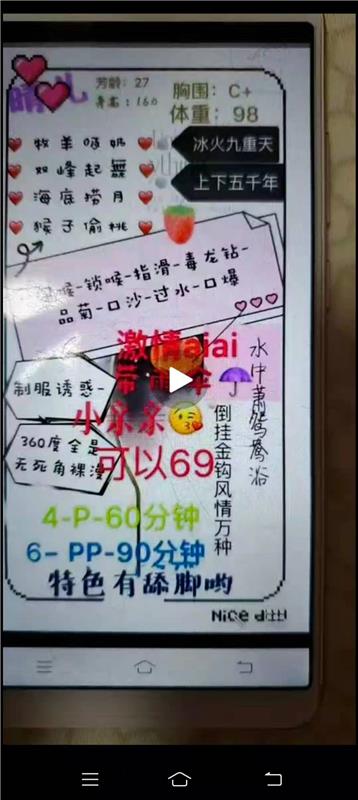 晴儿
芳龄：27
身高：160
胸围：C+
体重：98
牧羊哺奶
双峰起舞
海底捞月
猴子偷桃
冰火九重天
上下五千年
喉-锁喉-指滑-毒龙钻-
品菊-口沙-过水-口爆
激情aiai
带雨伞
小亲亲
可以69
制服诱惑-
360度全是
无死角裸漫
水中萧鸳鸯浴
倒挂金钩风情万种
4-P-60分钟
6-PP-90分钟
特色有舔脚哟
Nice d